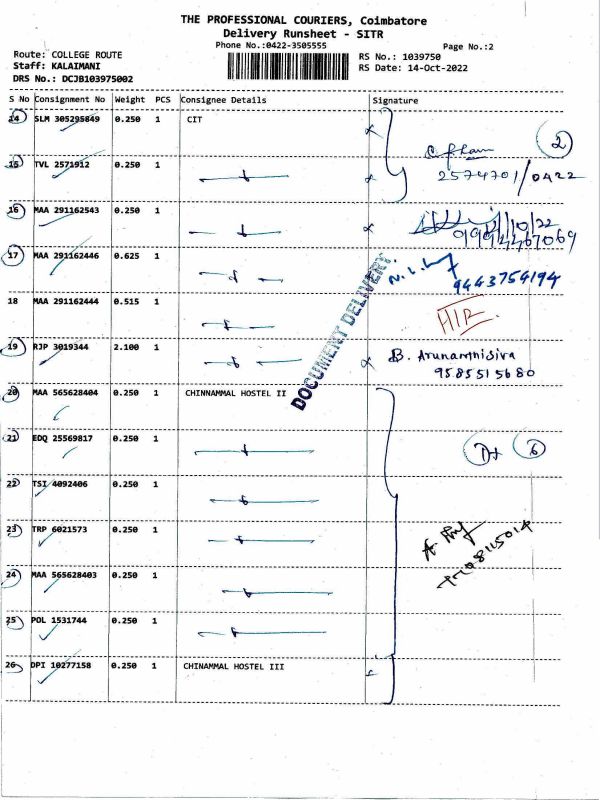 THE PROFESSIONAL COURIERS, Coimbatore
Delivery Runsheet - SITR
Phone No.:0422-3505555
Page No.:2
Route: COLLEGE ROUTE
RS No.: 1039750
Staff: KALAIMANI
RS Date: 14-Oct-2022
DRS No.: DCJB103975002
S No Consignment No Weight PCS Consignee Details Signature
14 SLM 305295849 0.250 1 CIT
2
15 TVL 2571912 0.250 1
2574701/0422
16 MAA 291162543 0.250 1
17 MAA 291162446 0.625 1
9443754194
18 MAA 291162444 0.515 1
DOCUMENT DELIVERY.
19 RJP 3019344 2.100 1 B. Arunanthisiva
9585515680
20 MAA 565628404 0.250 1 CHINNAMMAL HOSTEL II
21 EDQ 25569817 0.250 1
6
22 TSI 4092406 0.250 1
23 TRP 6021573 0.250 1
24 MAA 565628403 0.250 1
25 POL 1531744 0.250 1
26 DPI 10277158 0.250 1 CHINAMMAL HOSTEL III